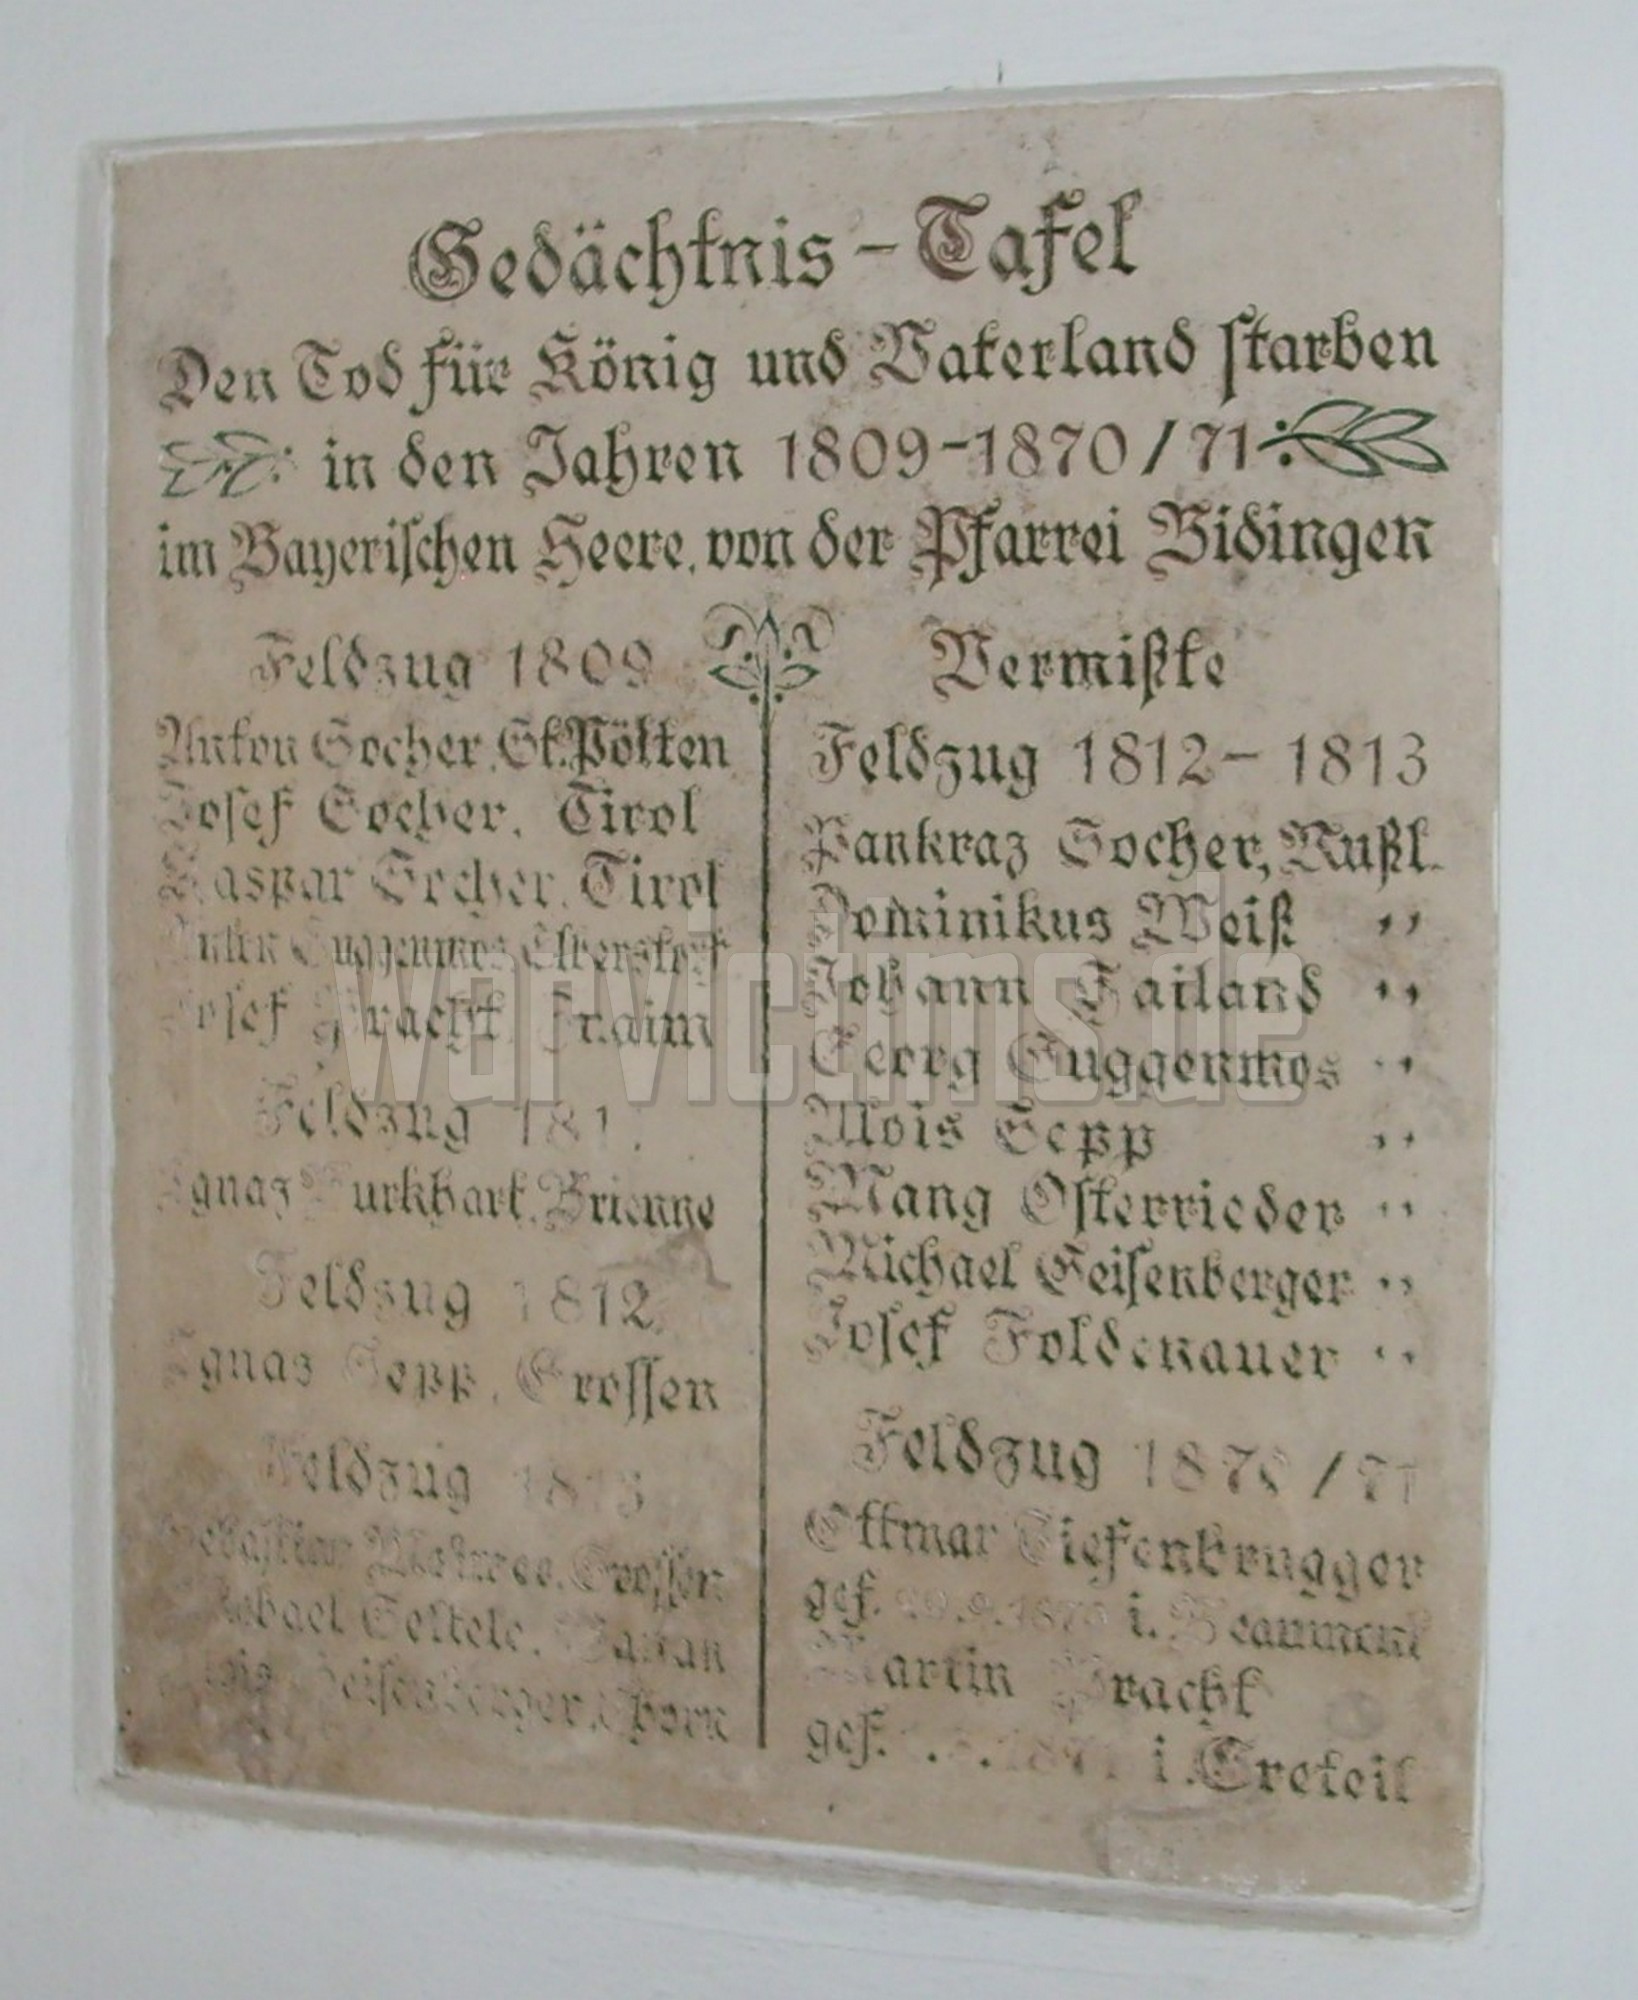 Gedächtnis - Tafel
Den Tod für König und Vaterland starben
in den Jahren 1809-1870/71
im Bayerischen Heere, von der Pfarrei Bidingen
Feldzug 1809
Anton Socher, St. Pölten
Josef Socher, Tirol
Kaspar Socher, Tirol
Guggenmos
Josef Pracht,
Feldzug 181
Ignaz Burkhart, Brienne
Feldzug 1812
Ignaz Sepp, Crossen
Feldzug 1813
Sebastian
Vermißte
Feldzug 1812 - 1813
Pankraz Socher, Rußl.
Dominikus Weiß "
Johann Failand "
Georg Guggenmos "
Alois Sepp "
Mang Osterrieder "
Michael Geisenberger "
Josef Foldenauer "
Feldzug 1870/71
Ottmar Tiefenbrugger
gef. i. Beaumont
Martin Pracht
gef. 1871 i. Creteil
warvictims.de